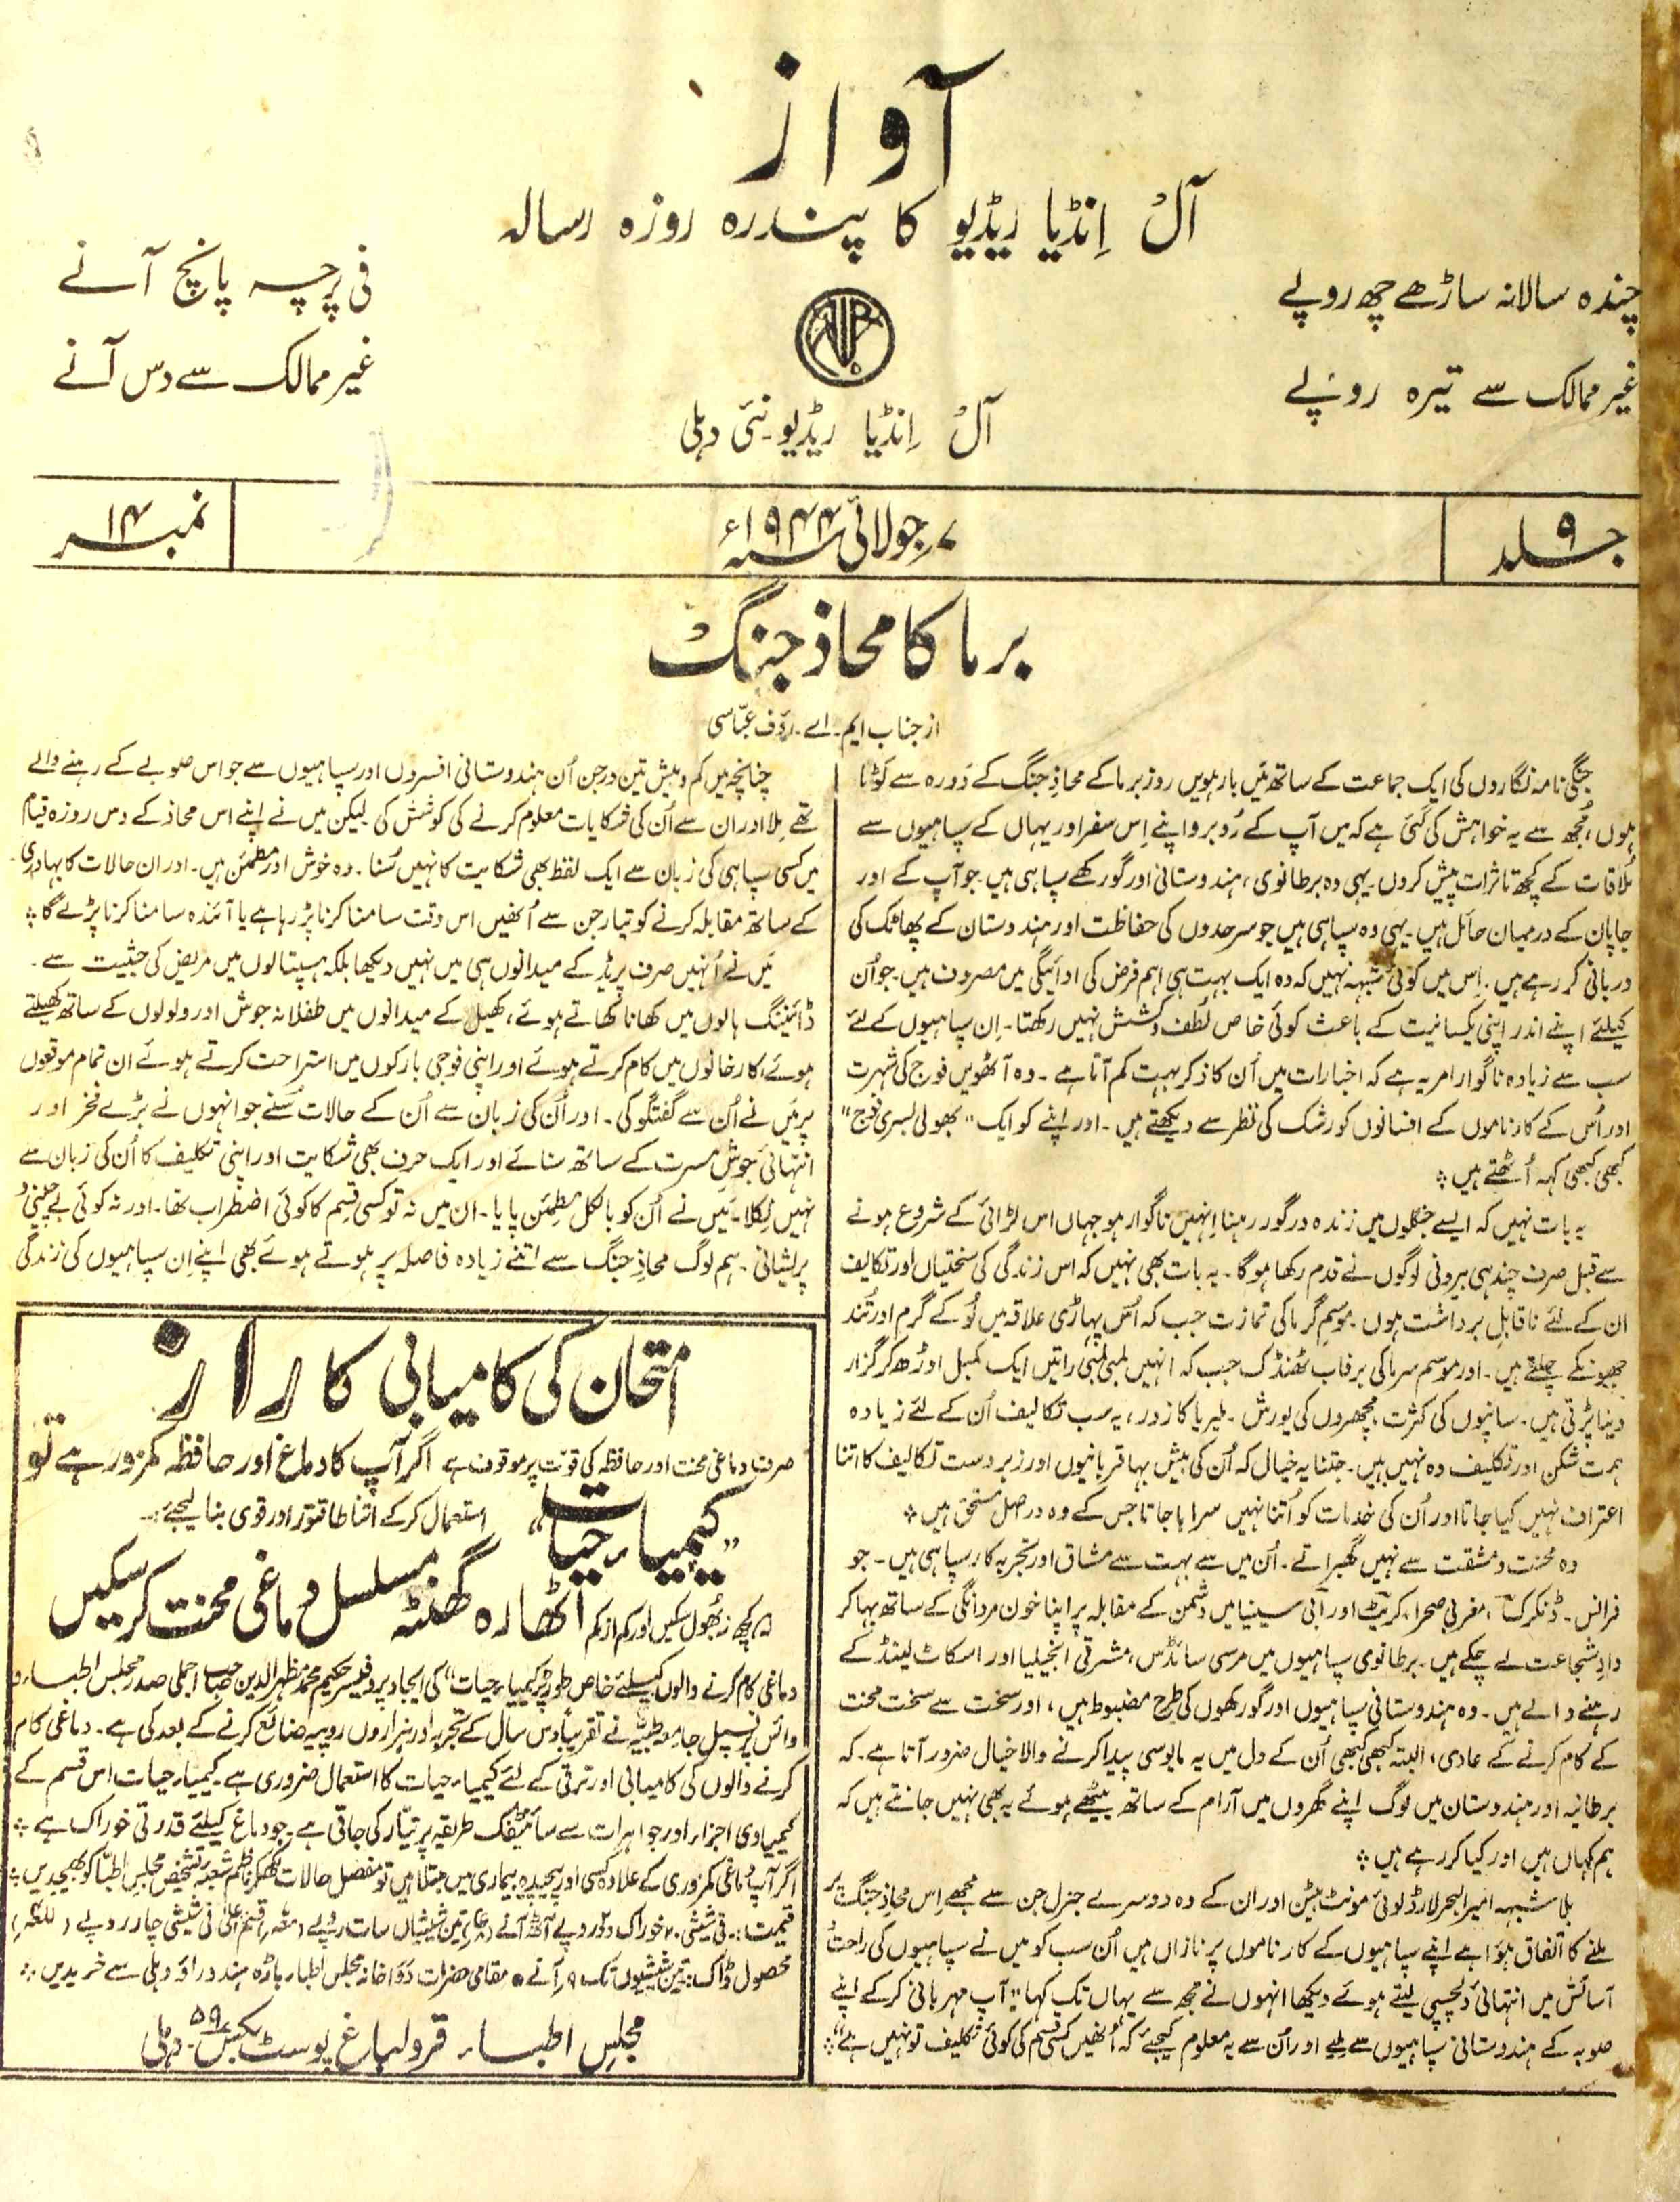 آواز
آل اِنڈیا ریڈیو کا پندرہ روزہ رسالہ
چندہ سالانہ ساڑھے چھ روپے
غیر ممالک سے تیرہ روپے
فی پرچہ پانچ آنے
غیر ممالک سے دس آنے
AIR
آل اِنڈیا ریڈیو۔ نئی دہلی
جلد ۹
۷؍جولائی سنہ ۱۹۴۴ء
نمبر ۱۴
برما کا محاذ جنگ
از جناب ایم۔ اے۔ رؤف عبّاسی
جنگی نامہ نگاروں کی ایک جماعت کے ساتھ مَیں بارہویں روز برما کے محاذِ جنگ کے دَورہ سے لَوٹا
ہوں، مُجھ سے یہ خواہش کی گئی ہے کہ میں آپ کے رُوبرو اپنے اِس سفر اور یہاں کے سپاہیوں سے
مُلاقات کے کچھ تاثرات پیش کروں۔ یہی وہ برطانوی، ہندوستانی اور گورکھے سپاہی ہیں۔ جو آپ کے اور
جاپان کے درمیان حائل ہیں۔ یہی وہ سپاہی ہیں جو سرحدوں کی حفاظت اور ہندوستان کے پھاٹک کی
دربانی کر رہے ہیں۔ اِس میں کوئی شبہہ نہیں کہ وہ ایک بہت ہی اہم فرض کی ادائیگی میں مصروف ہیں۔ جو اُن
کیلئے اپنے اندر اپنی یکسانیت کے باعث کوئی خاص لُطف و کشش نہیں رکھتا۔ اِن سپاہیوں کے لئے
سب سے زیادہ ناگوار امر یہ ہے کہ اخبارات میں اُن کا ذکر بہت کم آتا ہے۔ وہ آٹھویں فوج کی شہرت
اور اُس کے کارناموں کے افسانوں کو رشک کی نظر سے دیکھتے ہیں۔ اور اپنے کو ایک "بھولی بسری فوج"
کبھی کبھی کہہ اُٹھتے ہیں ؞
یہ بات نہیں کہ ایسے جنگلوں میں زندہ درگور رہنا اِنہیں ناگوار ہو جہاں اس لڑائی کے شروع ہونے
سے قبل صرف چند ہی بیرونی لوگوں نے قدم رکھا ہو گا۔ یہ بات بھی نہیں کہ اس زندگی کی سختیاں اور تکالیف
ان کے لئے ناقابلِ برداشت ہوں۔ موسمِ گرما کی تمازت جب کہ اس پہاڑی علاقہ میں لُو کے گرم اور تُند
جھونکے چلتے ہیں۔ اور موسم سرما کی برفاب ٹھنڈک جب کہ انہیں لمبی لمبی راتیں ایک کمبل اوڑھ کر گزار
دینا پڑتی ہیں۔ سانپوں کی کثرت، مچھروں کی یورش۔ ملیریا کا زور، یہ سب تکالیف اُن کے لئے زیادہ
ہمت شکن اور تکلیف دہ نہیں ہیں۔ جتنا یہ خیال کہ اُن کی بیش بہا قربانیوں اور زبردست تکالیف کا اتنا
اعتراف نہیں کیا جاتا اور اُن کی خدمات کو اُتنا نہیں سراہا جاتا جس کے وہ دراصل مستحق ہیں ؞
وہ محنت و مشقت سے نہیں گھبراتے۔ اُن میں سے بہت سے مشاق اور تجربہ کار سپاہی ہیں۔ جو
فرانس۔ ڈنکرک، مغربی صحرا، کریٹ اور آبی سینیا میں دشمن کے مقابلہ پر اپنا خون مردانگی کے ساتھ بہا کر
دادِ شجاعت لے چکے ہیں۔ برطانوی سپاہیوں میں مرسی سائڈس، مشرقی انجیلیا اور اسکاٹ لینڈ کے
رہنے والے ہیں۔ وہ ہندوستانی سپاہیوں اور گورکھوں کی طرح مضبوط ہیں، اور سخت سے سخت محنت
کے کام کرنے کے عادی، البتہ کبھی کبھی اُن کے دل میں یہ مایوسی پیدا کرنے والا خیال ضرور آتا ہے۔ کہ
برطانیہ اور ہندوستان میں لوگ اپنے گھروں میں آرام کے ساتھ بیٹھے ہوئے یہ بھی نہیں جانتے ہیں کہ
ہم کہاں ہیں اور کیا کر رہے ہیں ؞
بلاشبہہ امیر البحر لارڈ لوئی مونٹ بیٹن اور ان کے وہ دوسرے جنرل جن سے مجھے اِس محاذِ جنگ پر
ملنے کا اتفاق ہوا ہے اپنے سپاہیوں کے کارناموں پر نازاں ہیں اُن سب کو میں نے سپاہیوں کی راحت و
آسائش میں انتہائی دلچسپی لیتے ہوئے دیکھا انہوں نے مجھ سے یہاں تک کہا "آپ مہربانی کر کے اپنے
صوبہ کے ہندوستانی سپاہیوں سے ملیے اور اُن سے یہ معلوم کیجئے کہ اُنھیں کسی قسم کی کوئی تکلیف تو نہیں ہے" ؞
چنانچہ میں کم و بیش تین درجن اُن ہندوستانی افسروں اور سپاہیوں سے جو اس صوبے کے رہنے والے
تھے مِلا اور ان سے اُن کی شکایات معلوم کرنے کی کوشش کی۔ لیکن میں نے اپنے اس محاذ کے دس روزہ قیام
میں کسی سپاہی کی زبان سے ایک لفظ بھی شکایت کا نہیں سُنا۔ وہ خوش اور مطمئن ہیں۔ اور ان حالات کا بہادری
کے ساتھ مقابلہ کرنے کو تیار جن سے اُنھیں اس وقت سامنا کرنا پڑ رہا ہے یا آئندہ سامنا کرنا پڑے گا ؞
مَیں نے اُنہیں صرف پریڈ کے میدانوں ہی میں نہیں دیکھا بلکہ ہسپتالوں میں مریض کی حیثیت سے۔
ڈائننگ ہالوں میں کھانا کھاتے ہوئے، کھیل کے میدانوں میں طفلانہ جوش اور ولولوں کے ساتھ کھیلتے
ہوئے، کارخانوں میں کام کرتے ہوئے اور اپنی فوجی بارکوں میں استراحت کرتے ہوئے ان تمام موقعوں
پر مَیں نے اُن سے گفتگو کی۔ اور اُن کی زبان سے اُن کے حالات سُنے جو انہوں نے بڑے فخر اور
انتہائی جوشِ مسرت کے ساتھ سنائے اور ایک حرف بھی شکایت اور اپنی تکلیف کا اُن کی زبان سے
نہیں نِکلا۔ مَیں نے اُن کو بالکل مطمئن پایا۔ ان میں نہ تو کسی قسم کا کوئی اضطراب تھا۔ اور نہ کوئی بے چینی و
پریشانی۔ ہم لوگ محاذِ جنگ سے اتنے زیادہ فاصلہ پر ہوتے ہوئے بھی اپنے اِن سپاہیوں کی زندگی
امتحان کی کامیابی کا راز
صرف دماغی محنت اور حافظہ کی قوت پر موقوف ہے اگر آپ کا دماغ اور حافظہ کمزور ہے تو
"کیمیاء حیات" استعمال کر کے اتنا طاقتور اور قوی بنا لیجئے:۔
کچھ نہ بُھول سکیں اور کم از کم اٹھارہ گھنٹہ مسلسل دماغی محنت کر سکیں
دماغی کام کرنے والوں کیلئے خاص طور پر "کیمیاء حیات" کی ایجاد پروفیسر حکیم محمد مظہر الدین صاحب اجملی صدر مجلس اطباء و
وائس پرنسپل جامعہ طبیہ نے تقریباً دس سال کے تجربہ اور ہزاروں روپیہ ضائع کرنے کے بعد کی ہے۔ دماغی کام
کرنے والوں کی کامیابی اور ترقی کے لئے کیمیاء حیات کا استعمال ضروری ہے۔ کیمیاء حیات اس قسم کے
کیمیاوی اجزاء اور جواہرات سے سائنٹفک طریقہ پر تیار کی جاتی ہے۔ جو دماغ کیلئے قدرتی خوراک ہے ؞
اگر آپ دماغی کمزوری کے علاوہ کسی اور پیچیدہ بیماری میں مبتلا ہیں تو مفصل حالات لکھکر ناظم شعبہ تشخیص مجلس اطبّا کو بھیجدیں ؞
قیمت:۔ فی شیشی ۲۰ خوراک دو روپے آٹھ آنے تین شیشیاں سات روپے قسم اعلیٰ فی شیشی چار روپے
محصول ڈاک:۔ تین شیشیوں تک ۹؍ آنے • مقامی حضرات دَوَا خانہ مجلس اطباء باڑہ ہندو راؤ دہلی سے خریدیں ؞
مجلسِ اطباء۔ قرولباغ پوسٹ بکس ۵۹۔ دہلی